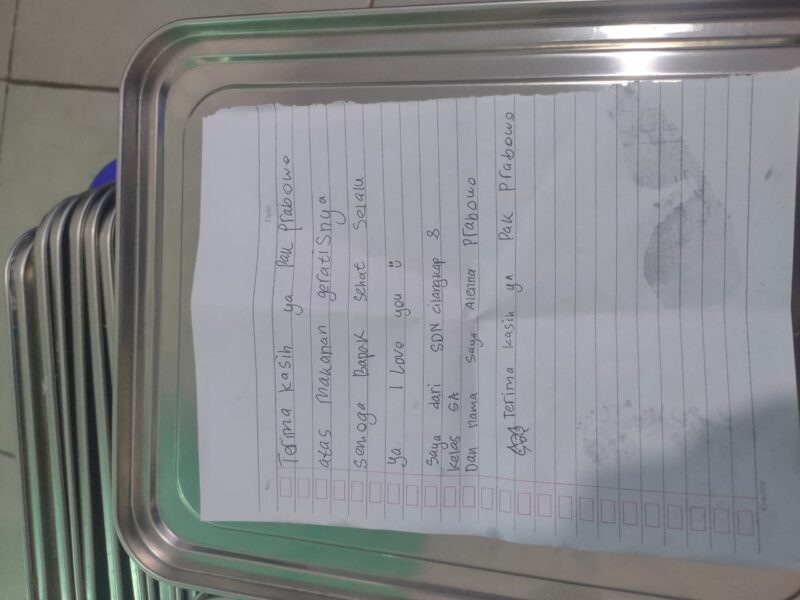 Terima kasih ya Pak Prabowo
atas Makanan geratisnya
Semoga Bapak Sehat Selalu
ya I Love you
Saya dari SDN cilangkap 8
Kelas 5A
Dan nama saya Alenna Prabowo
Terima kasih ya Pak Prabowo